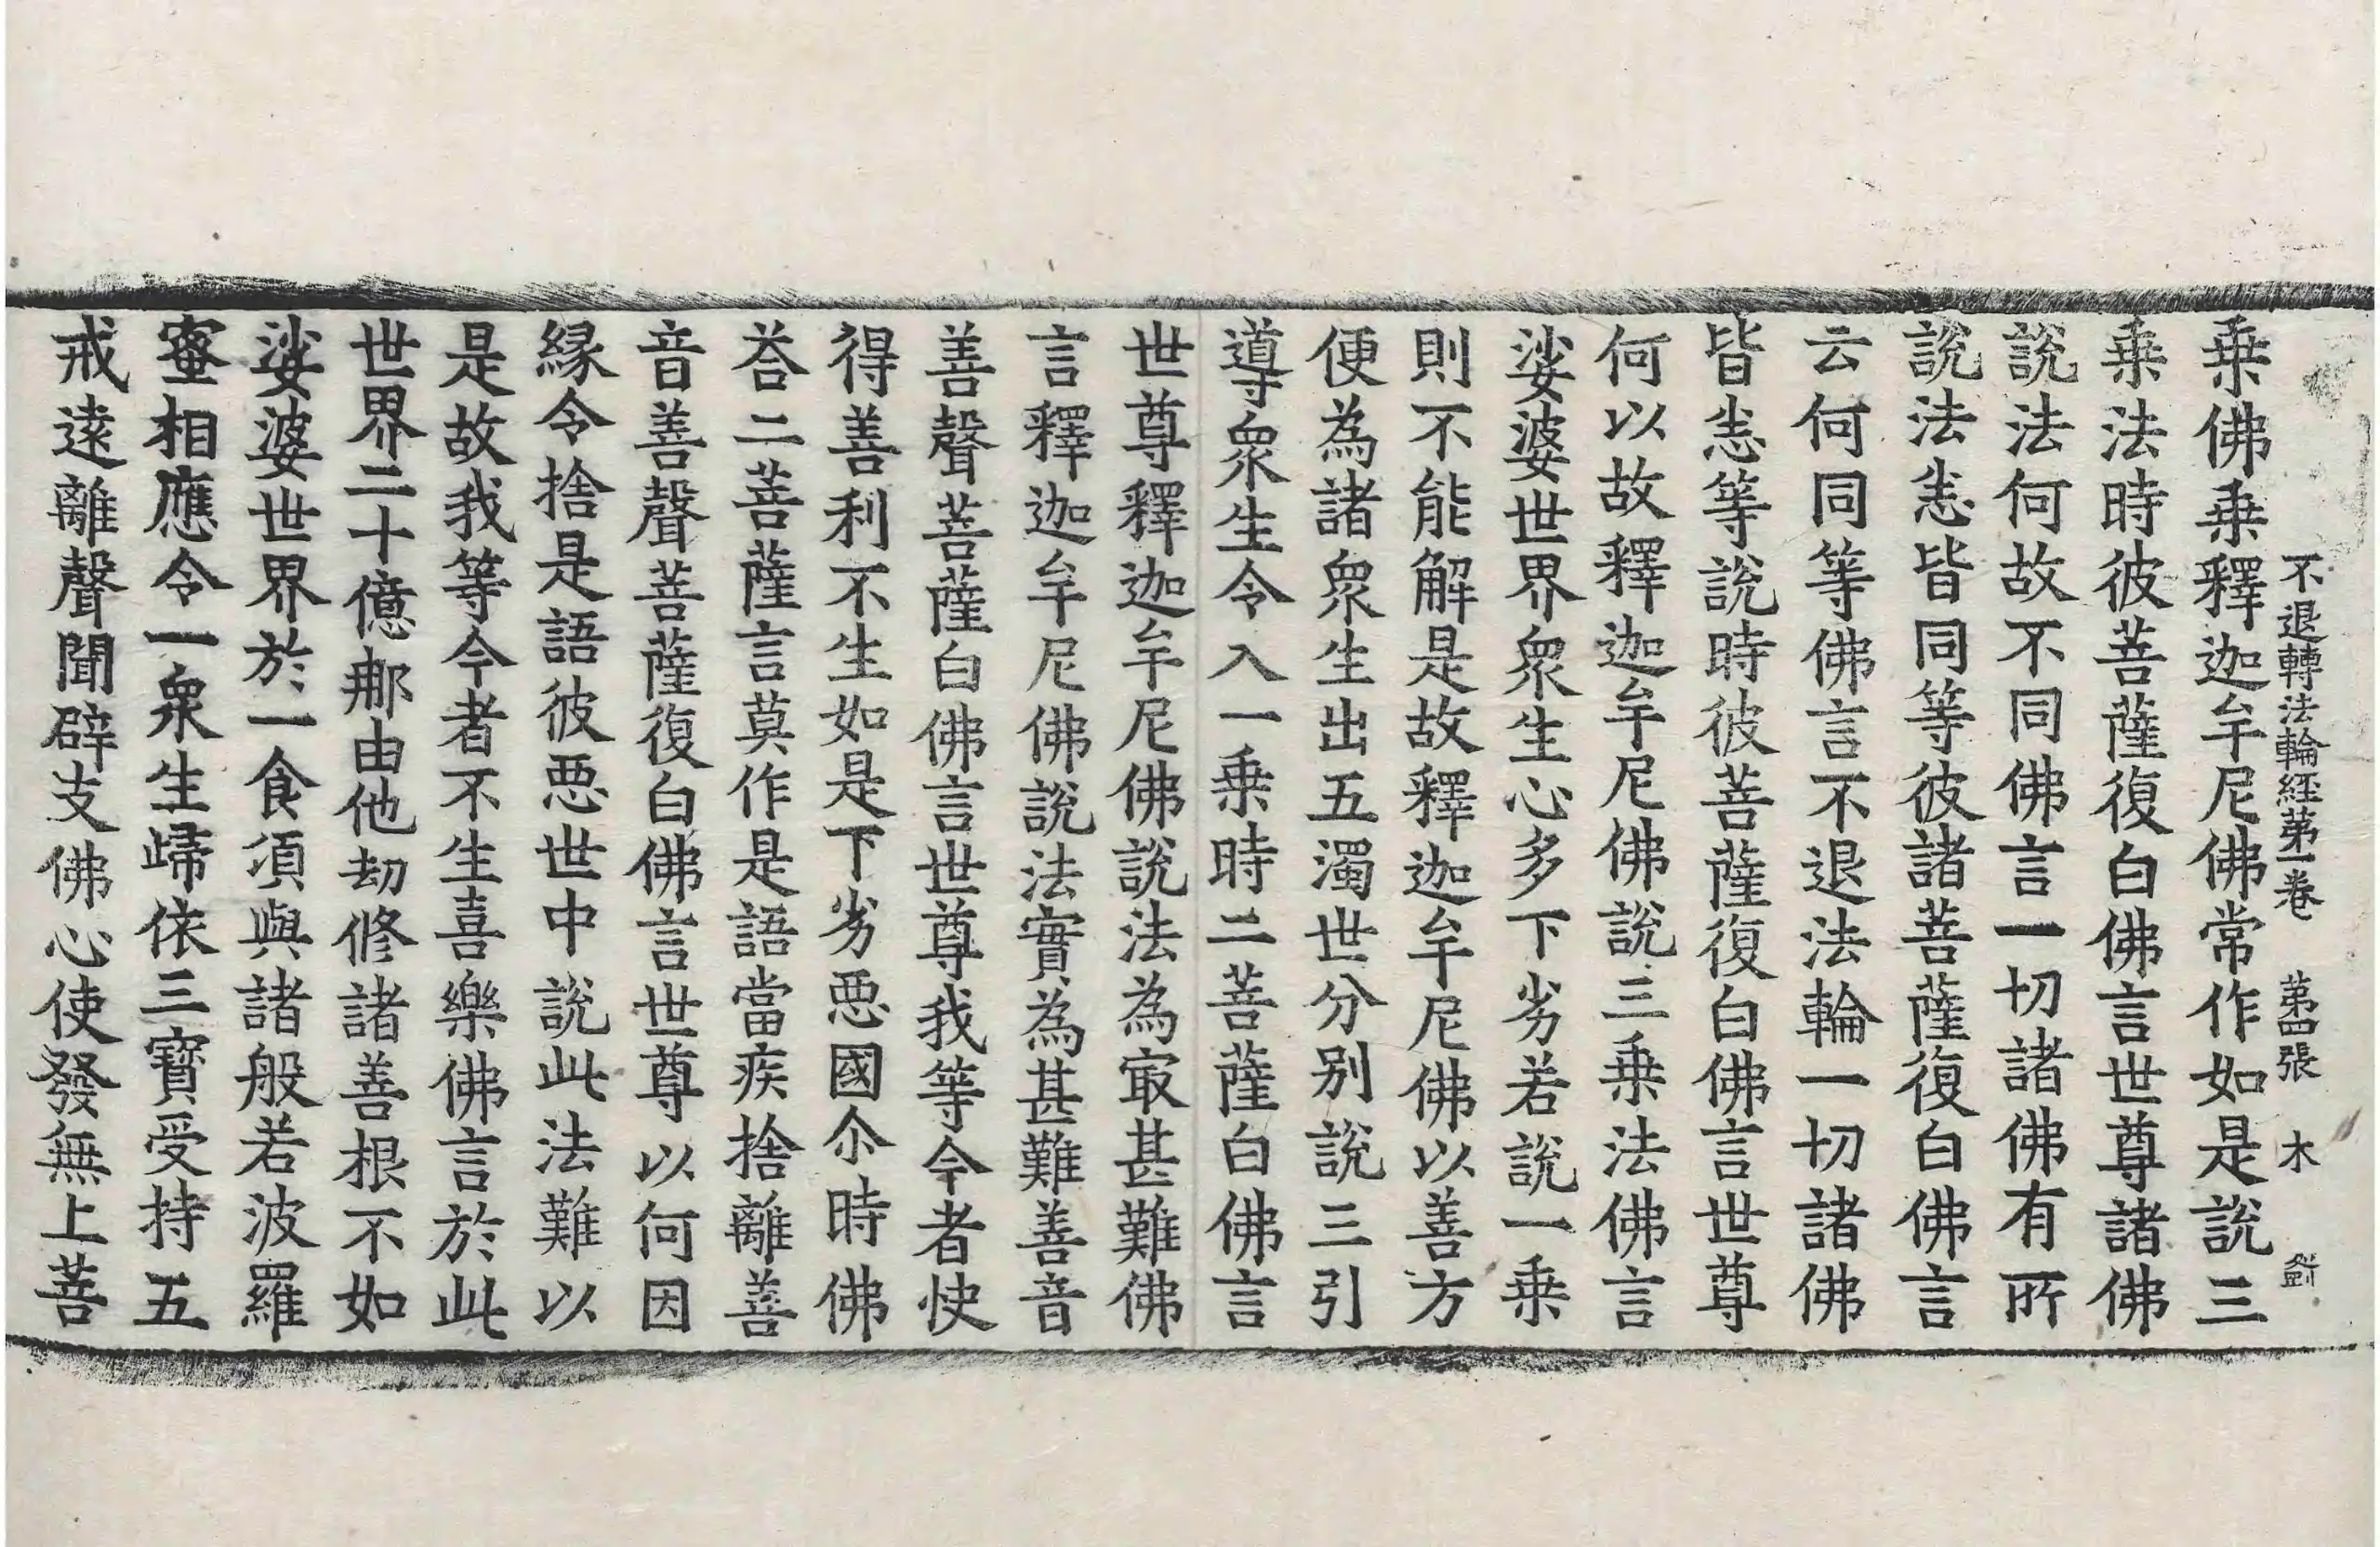 不退轉法輪經第一卷 第四張 木
乗佛乗釋迦牟尼佛常作如是說三
乗法時彼菩薩復白佛言世尊諸佛
說法何故不同佛言一切諸佛有所
說法恙皆同等彼諸菩薩復白佛言
云何同等佛言不退法輪一切諸佛
皆恙等說時彼菩薩復白佛言世尊
何以故釋迦牟尼佛說三乗法佛言
娑婆世界衆生心多下劣若說一乗
則不能解是故釋迦牟尼佛以善方
便為諸衆生出五濁世分別說三引
導衆生令入一乗時二菩薩白佛言
世尊釋迦牟尼佛說法為㝡甚難佛
言釋迦牟尼佛說法實為甚難善音
善聲菩薩白佛言世尊我等今者快
得善利不生如是下劣惡國尒時佛
荅二菩薩言莫作是語當疾捨離善
音善聲菩薩復白佛言世尊以何因
縁令捨是語彼惡世中說此法難以
是故我等今者不生喜樂佛言於此
世界二十億那由他劫修諸善根不如
娑婆世界於一食須與諸般若波羅
蜜相應令一衆生歸依三寶受持五
戒遠離聲聞辟支佛心使發無上菩